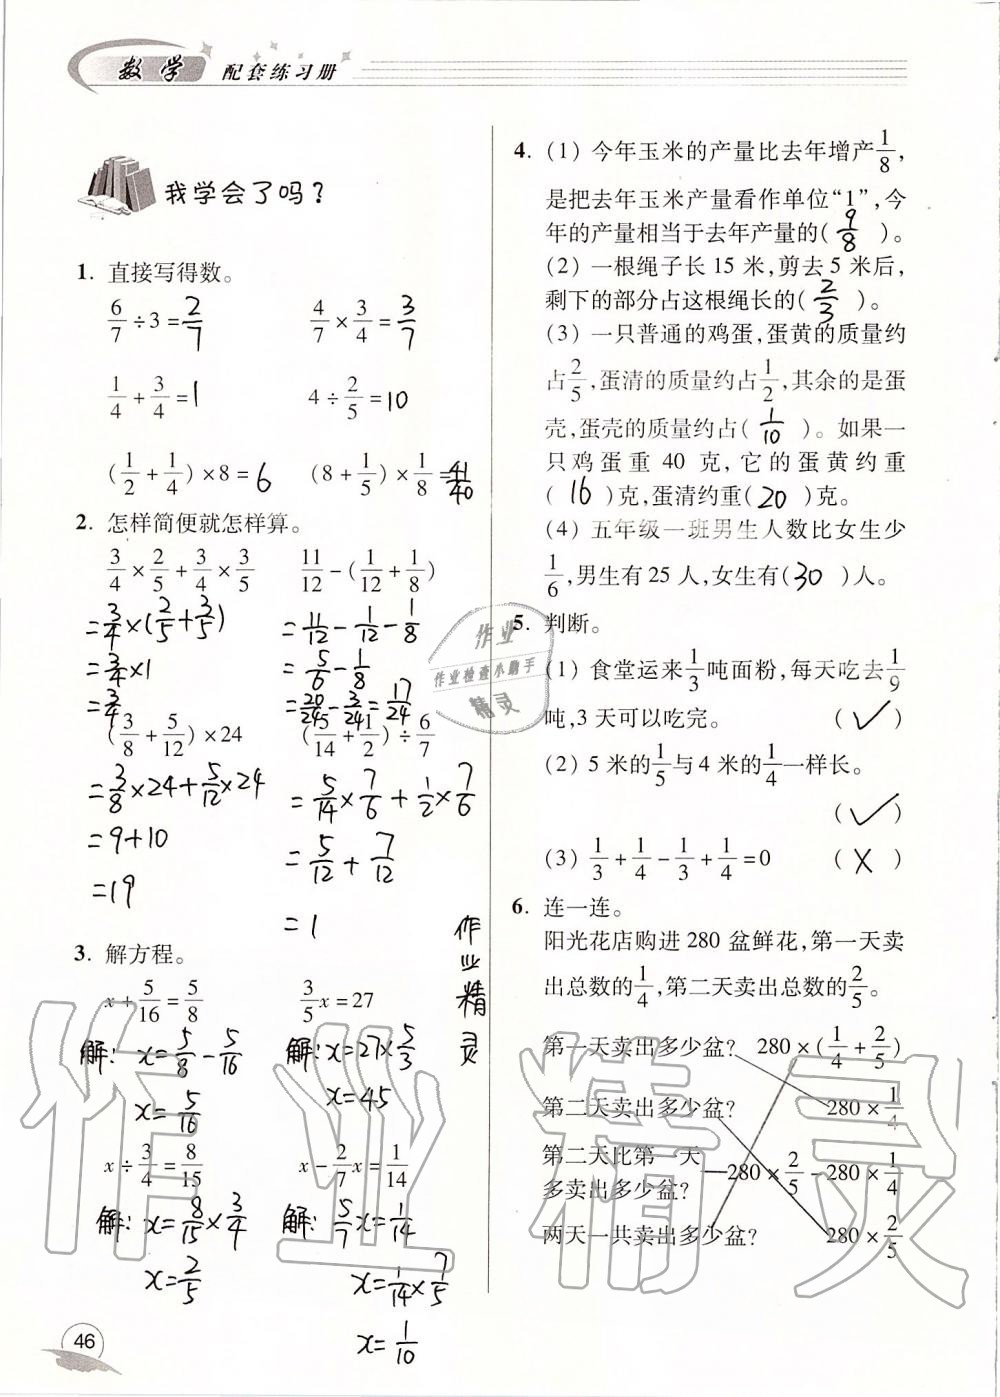 数学 配套练习册
我学会了吗?
1. 直接写得数。
6/7÷3=2/7 4/7×3/4=3/7
1/4+3/4=1 4÷2/5=10
(1/2+1/4)×8=6 (8+1/5)×1/8=41/40
2. 怎样简便就怎样算。
3/4×2/5+3/4×3/5 11/12-(1/12+1/8)
=3/4×(2/5+3/5) =11/12-1/12-1/8
=3/4×1 =5/6-1/8
=3/4 =20/24-3/24=17/24
(3/8+5/12)×24 (5/14+1/2)÷6/7
=3/8×24+5/12×24 =5/14×7/6+1/2×7/6
=9+10 =5/12+7/12
=19 =1
3. 解方程。
x+5/16=5/8 3/5x=27
解:x=5/8-5/16 解:x=27×5/3
x=5/16 x=45
x÷3/4=8/15 x-2/7x=1/14
解:x=8/15×3/4 解:5/7x=1/14
x=2/5 x=1/14×7/5
x=1/10
作业精灵
46
4. (1) 今年玉米的产量比去年增产1/8,
是把去年玉米产量看作单位“1”,今
年的产量相当于去年产量的(9/8)。
(2) 一根绳子长15米,剪去5米后,
剩下的部分占这根绳长的(2/3)。
(3) 一只普通的鸡蛋,蛋黄的质量约
占2/5,蛋清的质量约占1/2,其余的是蛋
壳,蛋壳的质量约占(1/10)。如果一
只鸡蛋重40克,它的蛋黄约重
(16)克,蛋清约重(20)克。
(4) 五年级一班男生人数比女生少
1/6,男生有25人,女生有(30)人。
5. 判断。
(1) 食堂运来1/3吨面粉,每天吃去1/9
吨,3天可以吃完。 (✓)
(2) 5米的1/5与4米的1/4一样长。
(✓)
(3) 1/3+1/4-1/3+1/4=0 (X)
6. 连一连。
阳光花店购进280盆鲜花,第一天卖
出总数的1/4,第二天卖出总数的2/5。
第一天卖出多少盆? 280×(1/4+2/5)
第二天卖出多少盆? 280×1/4
第二天比第一天
多卖出多少盆? 280×2/5-280×1/4
两天一共卖出多少盆? 280×2/5
作业
作业检查小助手
精灵
作业精灵